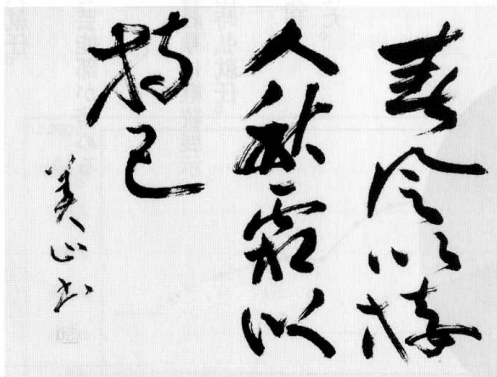 春風以接
人秋霜以
持己
美 書